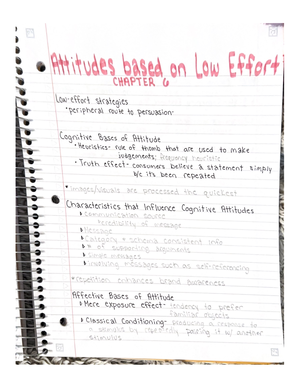 Attitudes based on Low Effort
CHAPTER 6
Low-effort strategies
•peripheral route to persuasion
Cognitive Bases of Attitude
•Heuristics- rule of thumb that are used to make
judgements; frequency heuristic
•Truth effect- consumers believe a statement simply
b/c it's been repeated
*images/visuals are processed the quickest
Characteristics that Influence Cognitive Attitudes
communication source
credibility of message
Message
Category + schema consistent info
# of supporting arguments
Simple messages
Involving messages such as self-referencing
*repetition enhances brand awareness
Affective Bases of Attitude
Mere exposure effect- tendency to prefer
familiar objects
Classical Conditioning- producing a response to
a stimulus by repeatedly pairing it w/ another
stimulus